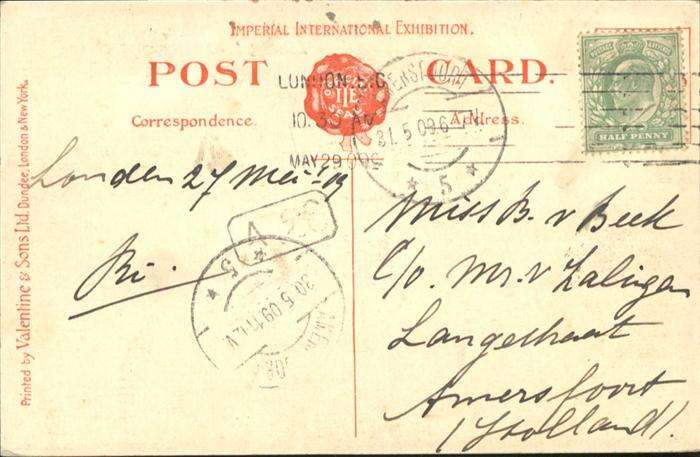 IMPERIAL INTERNATIONAL EXHIBITION.
POST CARD.
Correspondence.
Address.
LONDON. E.C.
10.35 AM
MAY 29 09
31. 5 09 6
* 5 *
HALF PENNY
Londen 27 Mei '09
Ri.
Miss B. v Beek
C/o. Mr. v Zalingen
Langestraat
Amersfoort
(Holland).
30. 5 09 11
* 5 *
Printed by Valentine & Sons Ltd. Dundee, London & New York.